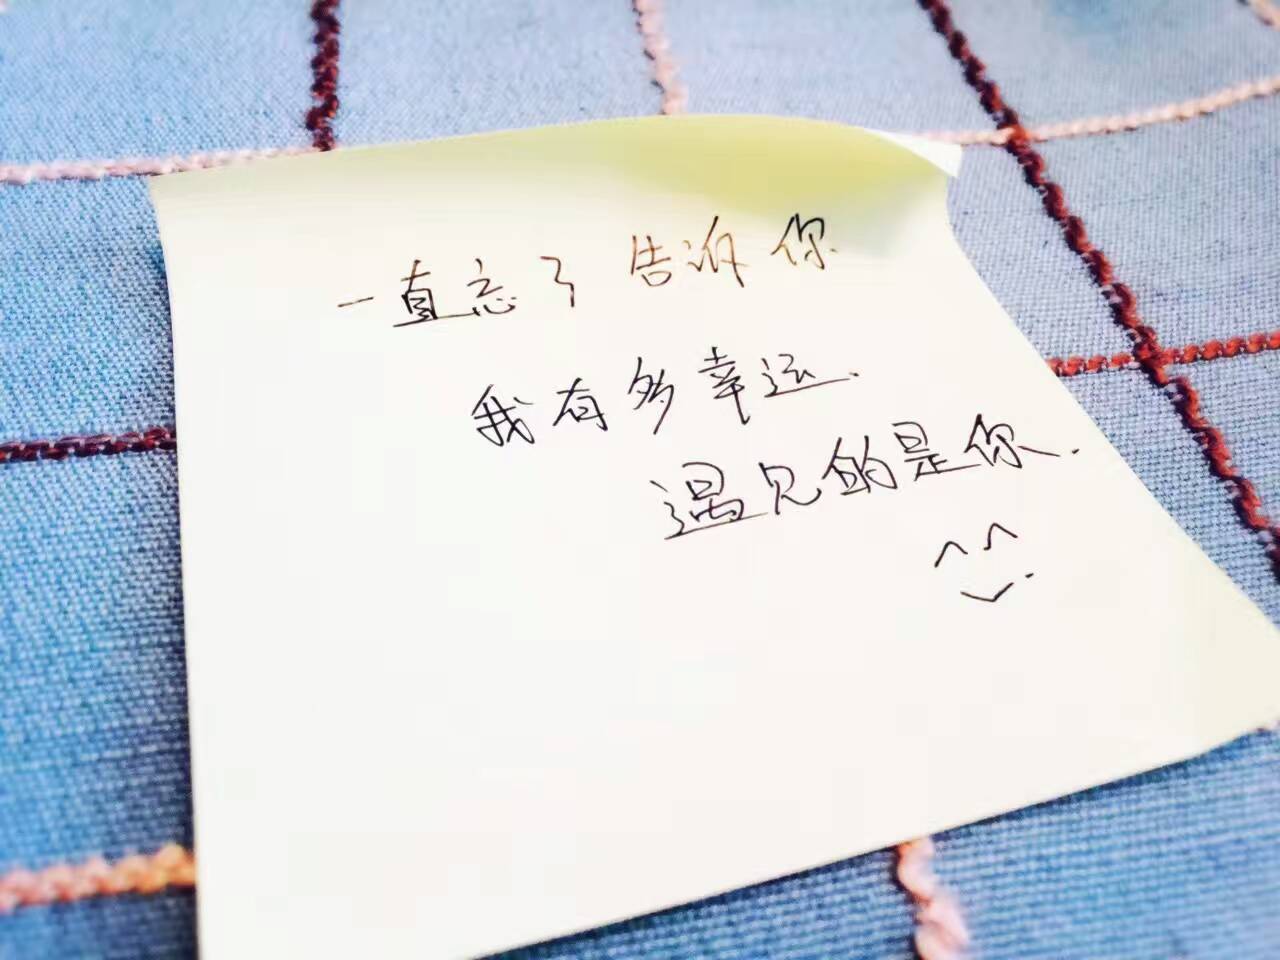 一直忘了告诉你
我有多幸运.
遇见的是你.